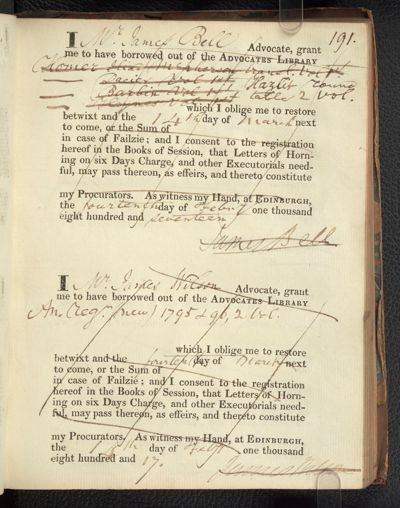 191.
I Mr. James Bell Advocate, grant
me to have borrowed out of the ADVOCATES LIBRARY
Homer
Dacier Vol 1st Hazlit round
Barbin Vol 1st table 2 Vol.
which I oblige me to restore
betwixt and the 14th day of March next
to come, or the Sum of
in case of Failzie; and I consent to the registration
hereof in the Books of Session, that Letters of Horn-
ing on six Days Charge, and other Executorials need-
ful, may pass thereon, as effeirs, and thereto constitute
my Procurators. As witness my Hand, at EDINBURGH,
the fourteenth day of Feby one thousand
eight hundred and seventeen
James Bell
I Mr. James Wilson Advocate, grant
me to have borrowed out of the ADVOCATES LIBRARY
An. Regr. (new) 1795 & 96, 2 Vol.
which I oblige me to restore
betwixt and the fourteenth day of March next
to come, or the Sum of
in case of Failzié; and I consent to the registration
hereof in the Books of Session, that Letters of Horn-
ing on six Days Charge, and other Executorials need-
ful, may pass thereon, as effeirs, and thereto constitute
my Procurators. As witness my Hand, at EDINBURGH,
the day of Feby one thousand
eight hundred and 17.
James Wilson